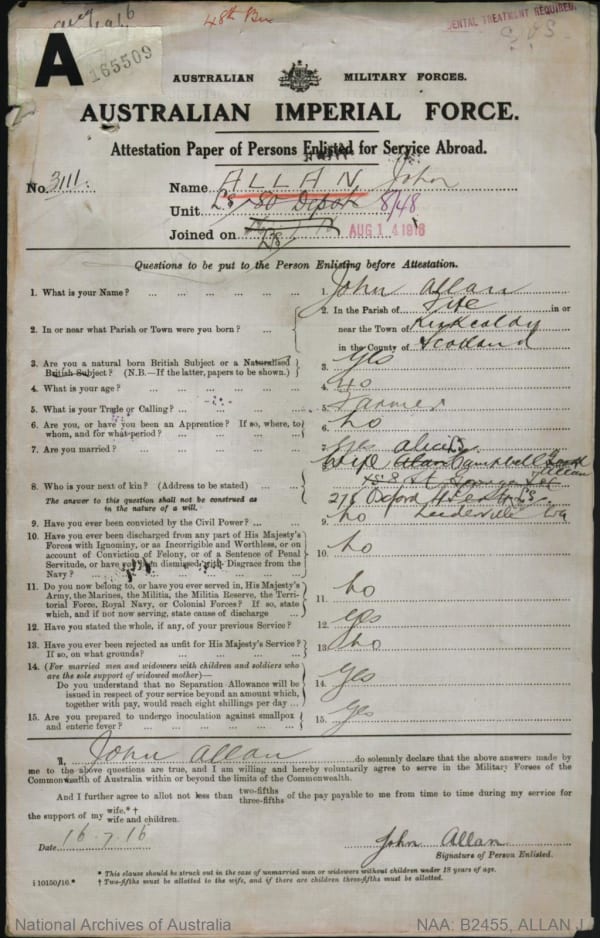 48th Bn
DENTAL TREATMENT REQUIRED.
A
165509
AUSTRALIAN MILITARY FORCES.
AUSTRALIAN IMPERIAL FORCE.
Attestation Paper of Persons Enlisted for Service Abroad.
No. 3111. Name ALLAN John
Unit Depot 8/48
Joined on AUG 14 1916
Questions to be put to the Person Enlisting before Attestation.
1. What is your Name? 1. John Allan
2. In or near what Parish or Town were you born? 2. In the Parish of Fife in or
near the Town of Kirkcaldy
in the County of Scotland
3. Are you a natural born British Subject or a Naturalised British Subject? (N.B.—If the latter, papers to be shown.) 3. Yes
4. What is your age? 4. 40
5. What is your Trade or Calling? 5. Farmer
6. Are you, or have you been an Apprentice? If so, where, to whom, and for what period? 6. No
7. Are you married? 7. Yes
8. Who is your next of kin? (Address to be stated) 8. Wife Alice Campbell Allan
The answer to this question shall not be construed as in the nature of a will.
St Georges
Oxford St
Leederville WA
9. Have you ever been convicted by the Civil Power? 9. No
10. Have you ever been discharged from any part of His Majesty's Forces with Ignominy, or as Incorrigible and Worthless, or on account of Conviction of Felony, or of a Sentence of Penal Servitude, or have you been dismissed with Disgrace from the Navy? 10. No
11. Do you now belong to, or have you ever served in, His Majesty's Army, the Marines, the Militia, the Militia Reserve, the Territorial Force, Royal Navy, or Colonial Forces? If so, state which, and if not now serving, state cause of discharge 11. No
12. Have you stated the whole, if any, of your previous Service? 12. Yes
13. Have you ever been rejected as unfit for His Majesty's Service? If so, on what grounds? 13. No
14. (For married men and widowers with children and soldiers who are the sole support of widowed mother)—
Do you understand that no Separation Allowance will be issued in respect of your service beyond an amount which, together with pay, would reach eight shillings per day 14. Yes
15. Are you prepared to undergo inoculation against smallpox and enteric fever? 15. Yes
I, John Allan do solemnly declare that the above answers made by
me to the above questions are true, and I am willing and hereby voluntarily agree to serve in the Military Forces of the
Commonwealth of Australia within or beyond the limits of the Commonwealth.
And I further agree to allot not less than two-fifths three-fifths of the pay payable to me from time to time during my service for
the support of my wife.*† wife and children.
Date 16.7.16 John Allan
Signature of Person Enlisted.
* This clause should be struck out in the case of unmarried men or widowers without children under 18 years of age.
† Two-fifths must be allotted to the wife, and if there are children three-fifths must be allotted.
i 10150/16.*
National Archives of Australia NAA: B2455, ALLAN J